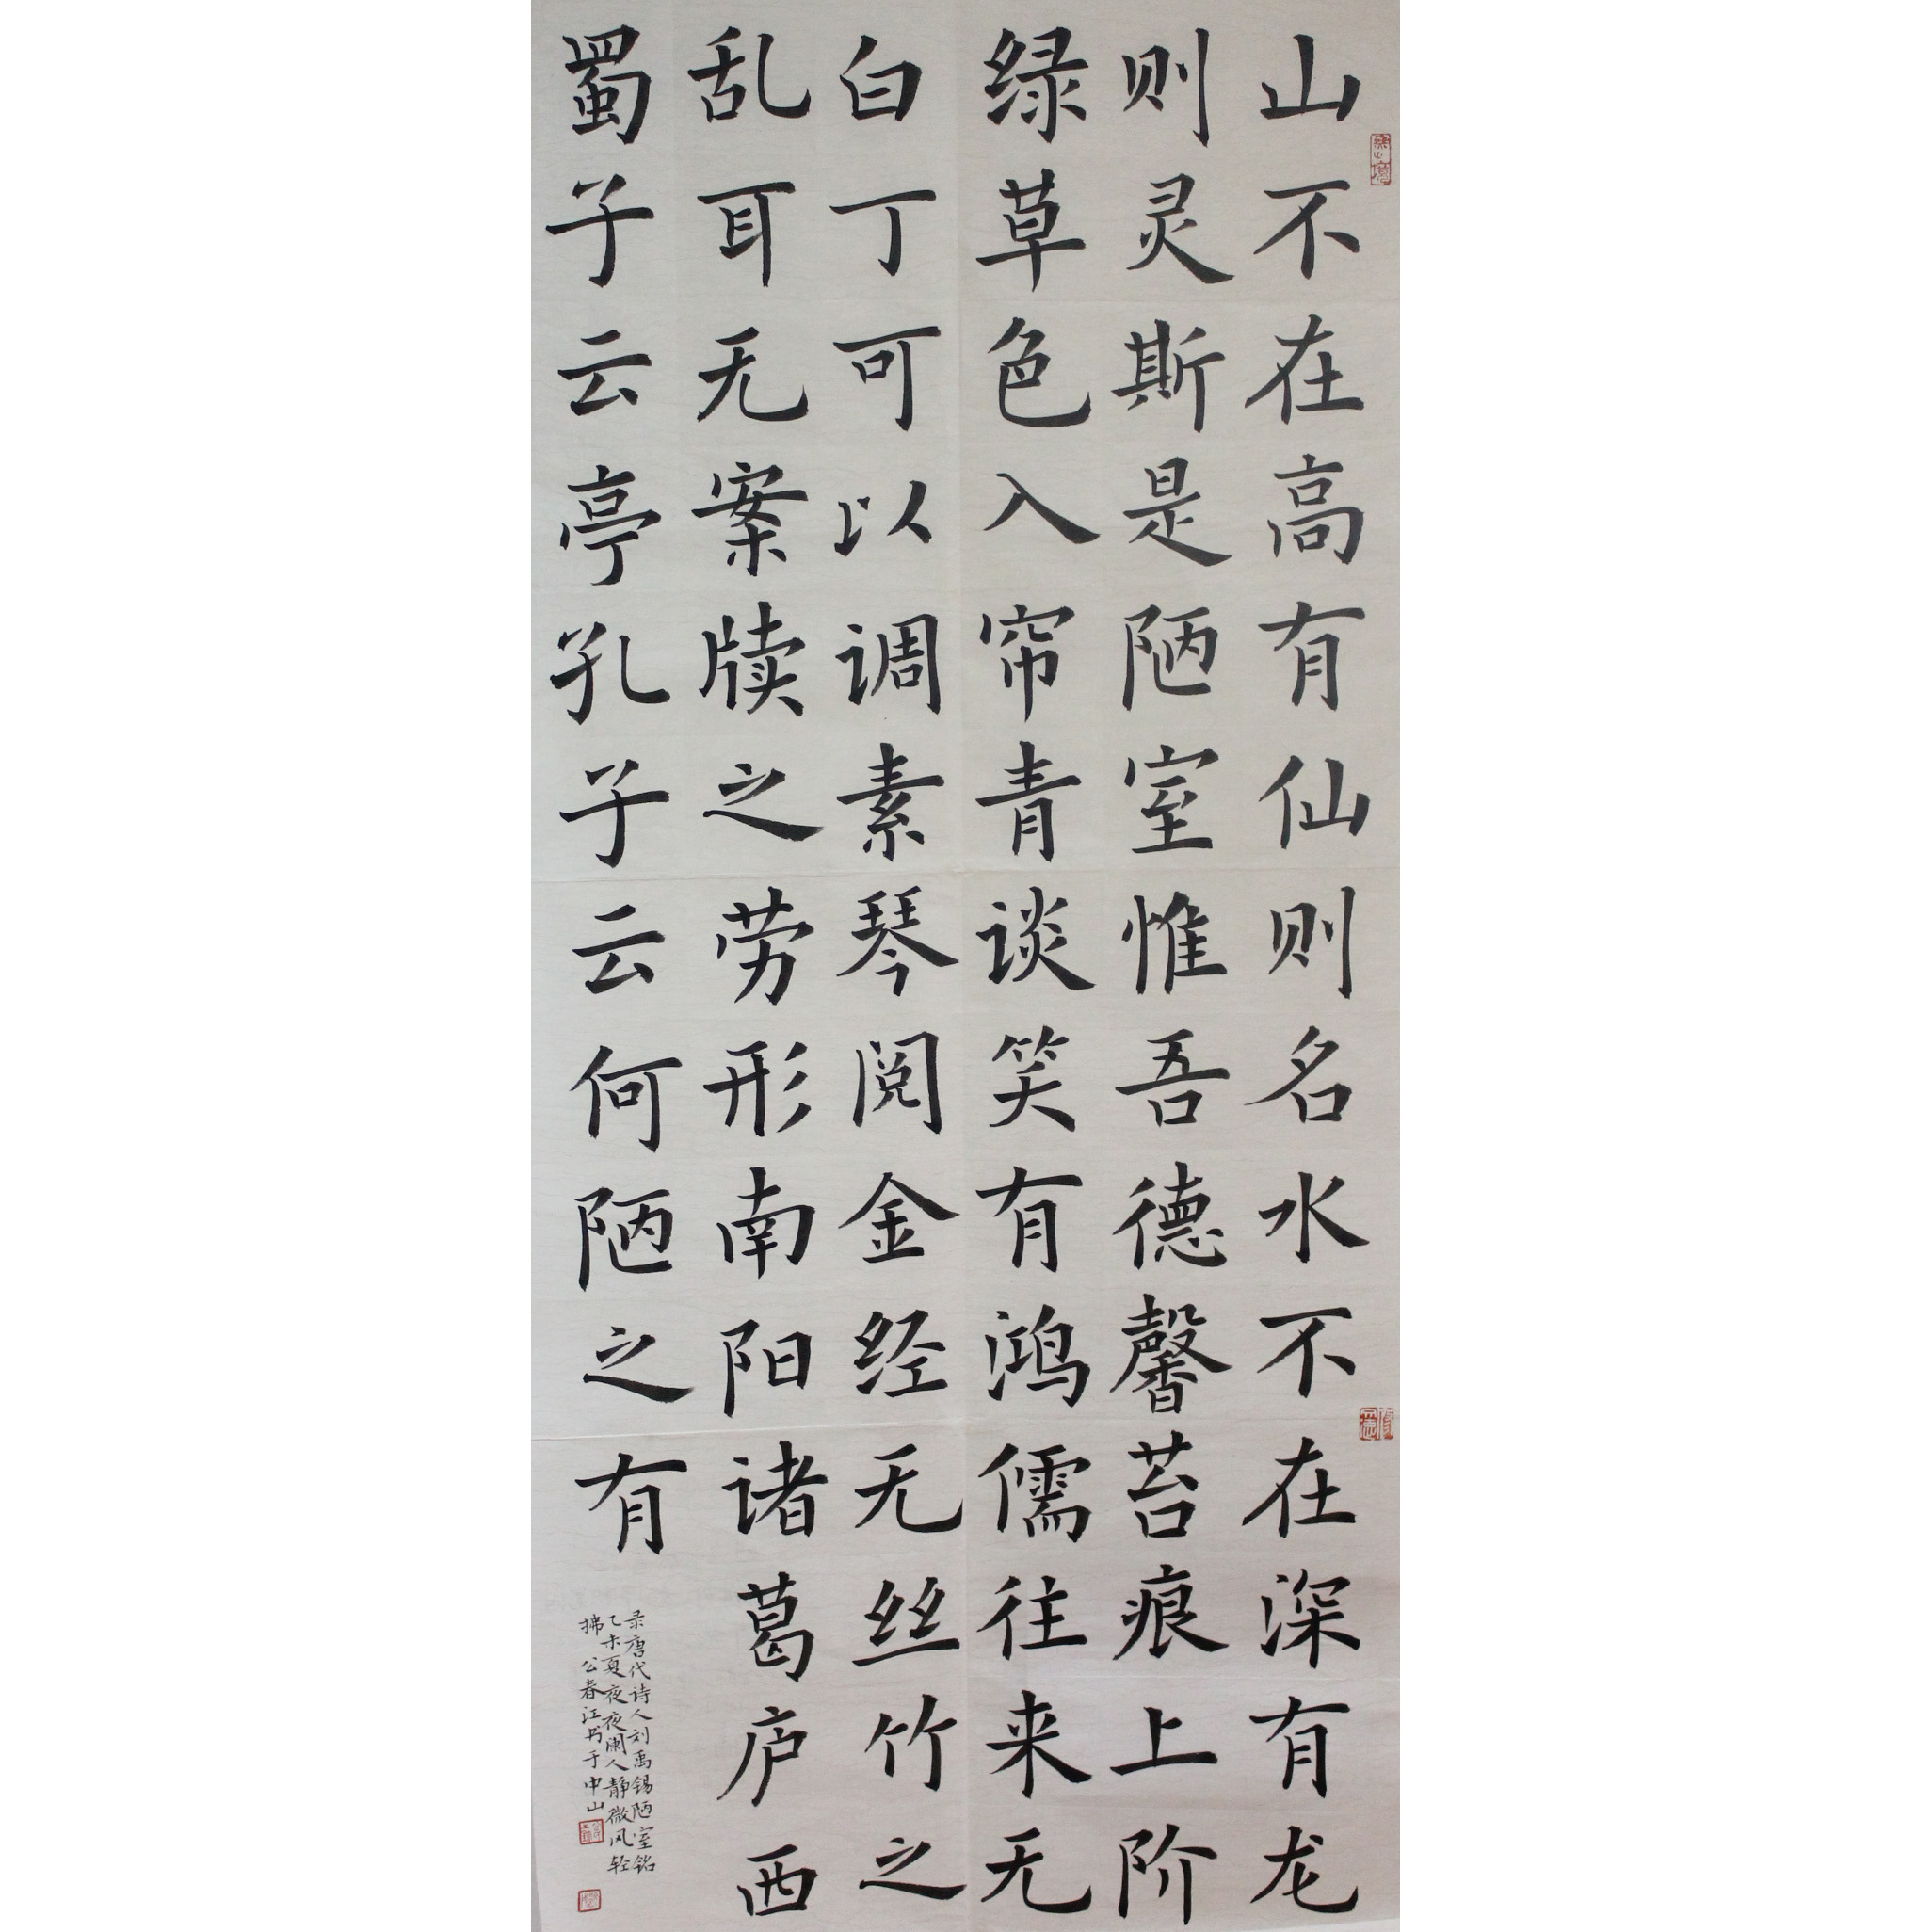 山不在高有仙则名水不在深有龙
则灵斯是陋室惟吾德馨苔痕上阶
绿草色入帘青谈笑有鸿儒往来无
白丁可以调素琴阅金经无丝竹之
乱耳无案牍之劳形南阳诸葛庐西
蜀子云亭孔子云何陋之有
录唐代诗人刘禹锡陋室铭
乙未夏夜夜阑人静微风轻
拂 公春江书于中山